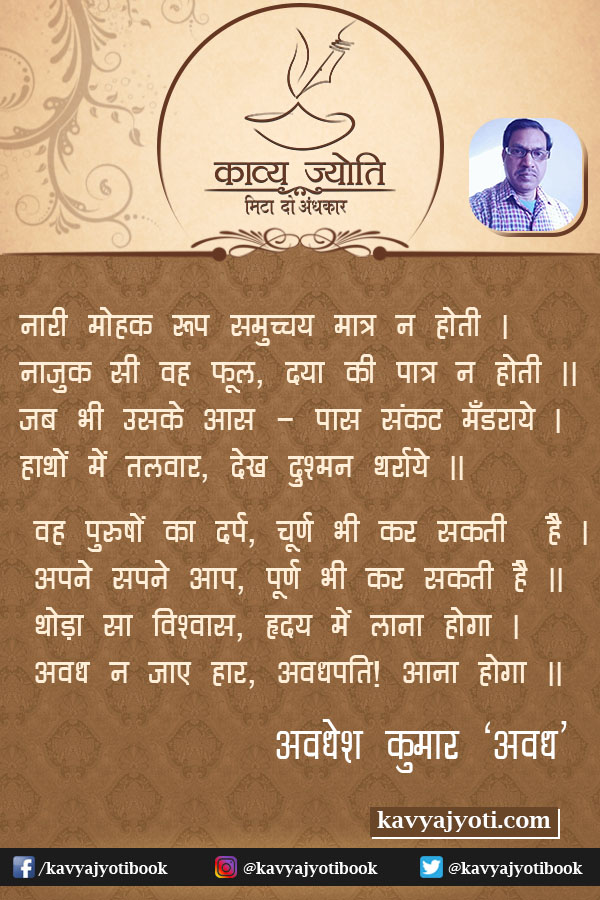 काव्य ज्योति
मिटा दो अंधकार
नारी मोहक रूप समुच्चय मात्र न होती ।
नाजुक सी वह फूल, दया की पात्र न होती ॥
जब भी उसके आस - पास संकट मँडराये ।
हाथों में तलवार, देख दुश्मन थर्राये ॥
वह पुरुषों का दर्प, चूर्ण भी कर सकती है ।
अपने सपने आप, पूर्ण भी कर सकती है ॥
थोड़ा सा विश्वास, हृदय में लाना होगा ।
अवध न जाए हार, अवधपति! आना होगा ॥
अवधेश कुमार ‘अवध’
kavyajyoti.com
/kavyajyotibook @kavyajyotibook @kavyajyotibook